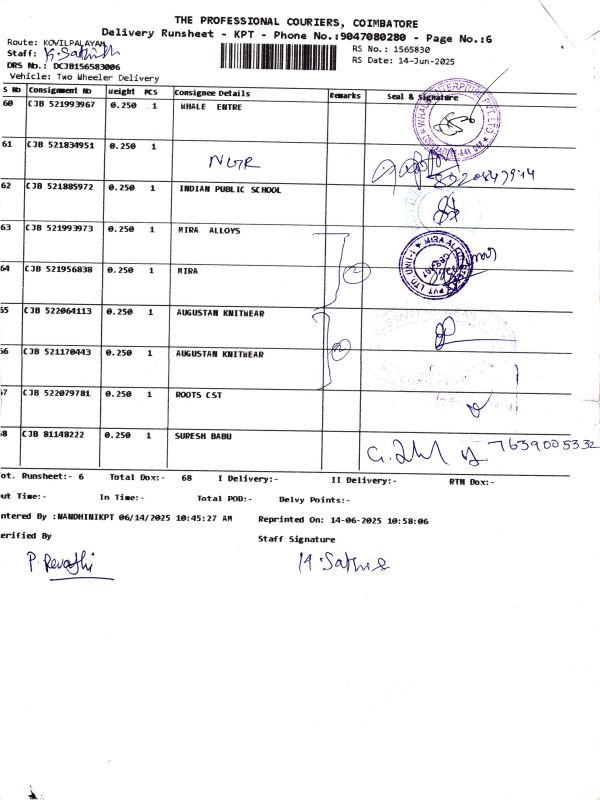 THE PROFESSIONAL COURIERS, COIMBATORE
Delivery Runsheet - KPT - Phone No.:9047080280 - Page No.:6
Route: KOVILPALAYAM
RS No.: 1565830
Staff: K. Sathish
RS Date: 14-Jun-2025
DRS No.: DCJB156583006
Vehicle: Two Wheeler Delivery
S No Consignment No Weight PCS Consignee Details Remarks Seal & Signature
60 CJB 521993967 0.250 1 WHALE ENTRE
61 CJB 521834951 0.250 1 NGR
8220847914
62 CJB 521885972 0.250 1 INDIAN PUBLIC SCHOOL
63 CJB 521993973 0.250 1 MIRA ALLOYS
64 CJB 521956838 0.250 1 MIRA 2
65 CJB 522064113 0.250 1 AUGUSTAN KNITWEAR
66 CJB 521170443 0.250 1 AUGUSTAN KNITWEAR 2
67 CJB 522079781 0.250 1 ROOTS CST
68 CJB 81148222 0.250 1 SURESH BABU 7639005332
ot. Runsheet:- 6 Total Dox:- 68 I Delivery:- II Delivery:- RTN Dox:-
ut Time:- In Time:- Total POD:- Delvy Points:-
ntered By :NANDHINIKPT 06/14/2025 10:45:27 AM Reprinted On: 14-06-2025 10:58:06
erified By Staff Signature
P. Revathi K. Sathish